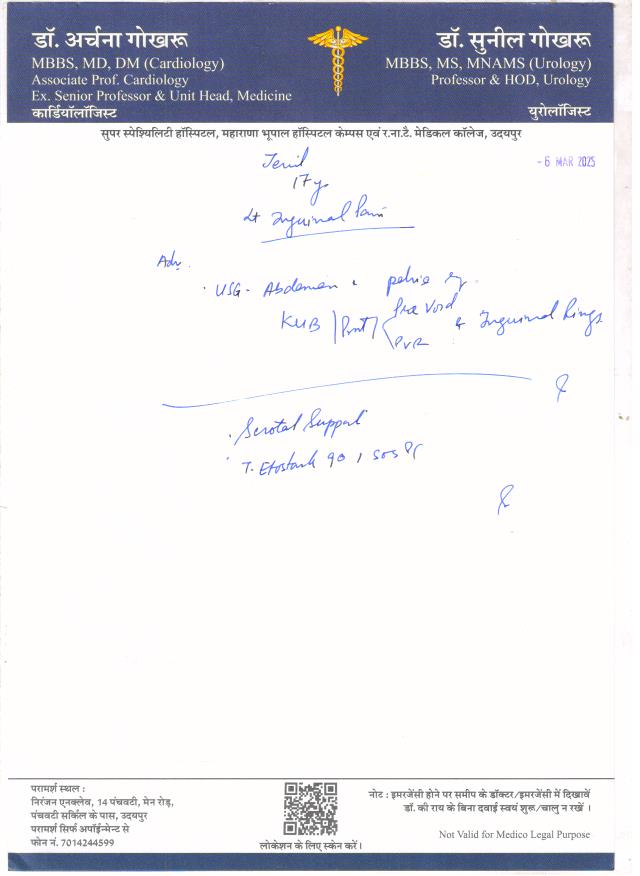 डॉ. अर्चना गोखरू
MBBS, MD, DM (Cardiology)
Associate Prof. Cardiology
Ex. Senior Professor & Unit Head, Medicine
कार्डियॉलॉजिस्ट
डॉ. सुनील गोखरू
MBBS, MS, MNAMS (Urology)
Professor & HOD, Urology
युरोलॉजिस्ट
सुपर स्पेश्यिलिटी हॉस्पिटल, महाराणा भूपाल हॉस्पिटल केम्पस एवं र.ना.टै. मेडिकल कॉलेज, उदयपुर
- 6 MAR 2025
17 y
Lt Inguinal Pain
Adv.
USG - Abdomen & pelvis
Pre Void
KUB / Prost / & Inguinal Rings
PVR
. Scrotal Support
T. Etostark 90 1 SOS
परामर्श स्थल :
निरंजन एनक्लेव, 14 पंचवटी, मेन रोड़,
पंचवटी सर्किल के पास, उदयपुर
परामर्श सिर्फ अपॉईन्मेन्ट से
फोन नं. 7014244599
लोकेशन के लिए स्केन करें।
नोट : इमरजेंसी होने पर समीप के डॉक्टर/इमरजेंसी में दिखावें
डॉ. की राय के बिना दवाई स्वयं शुरू/चालु न रखें ।
Not Valid for Medico Legal Purpose